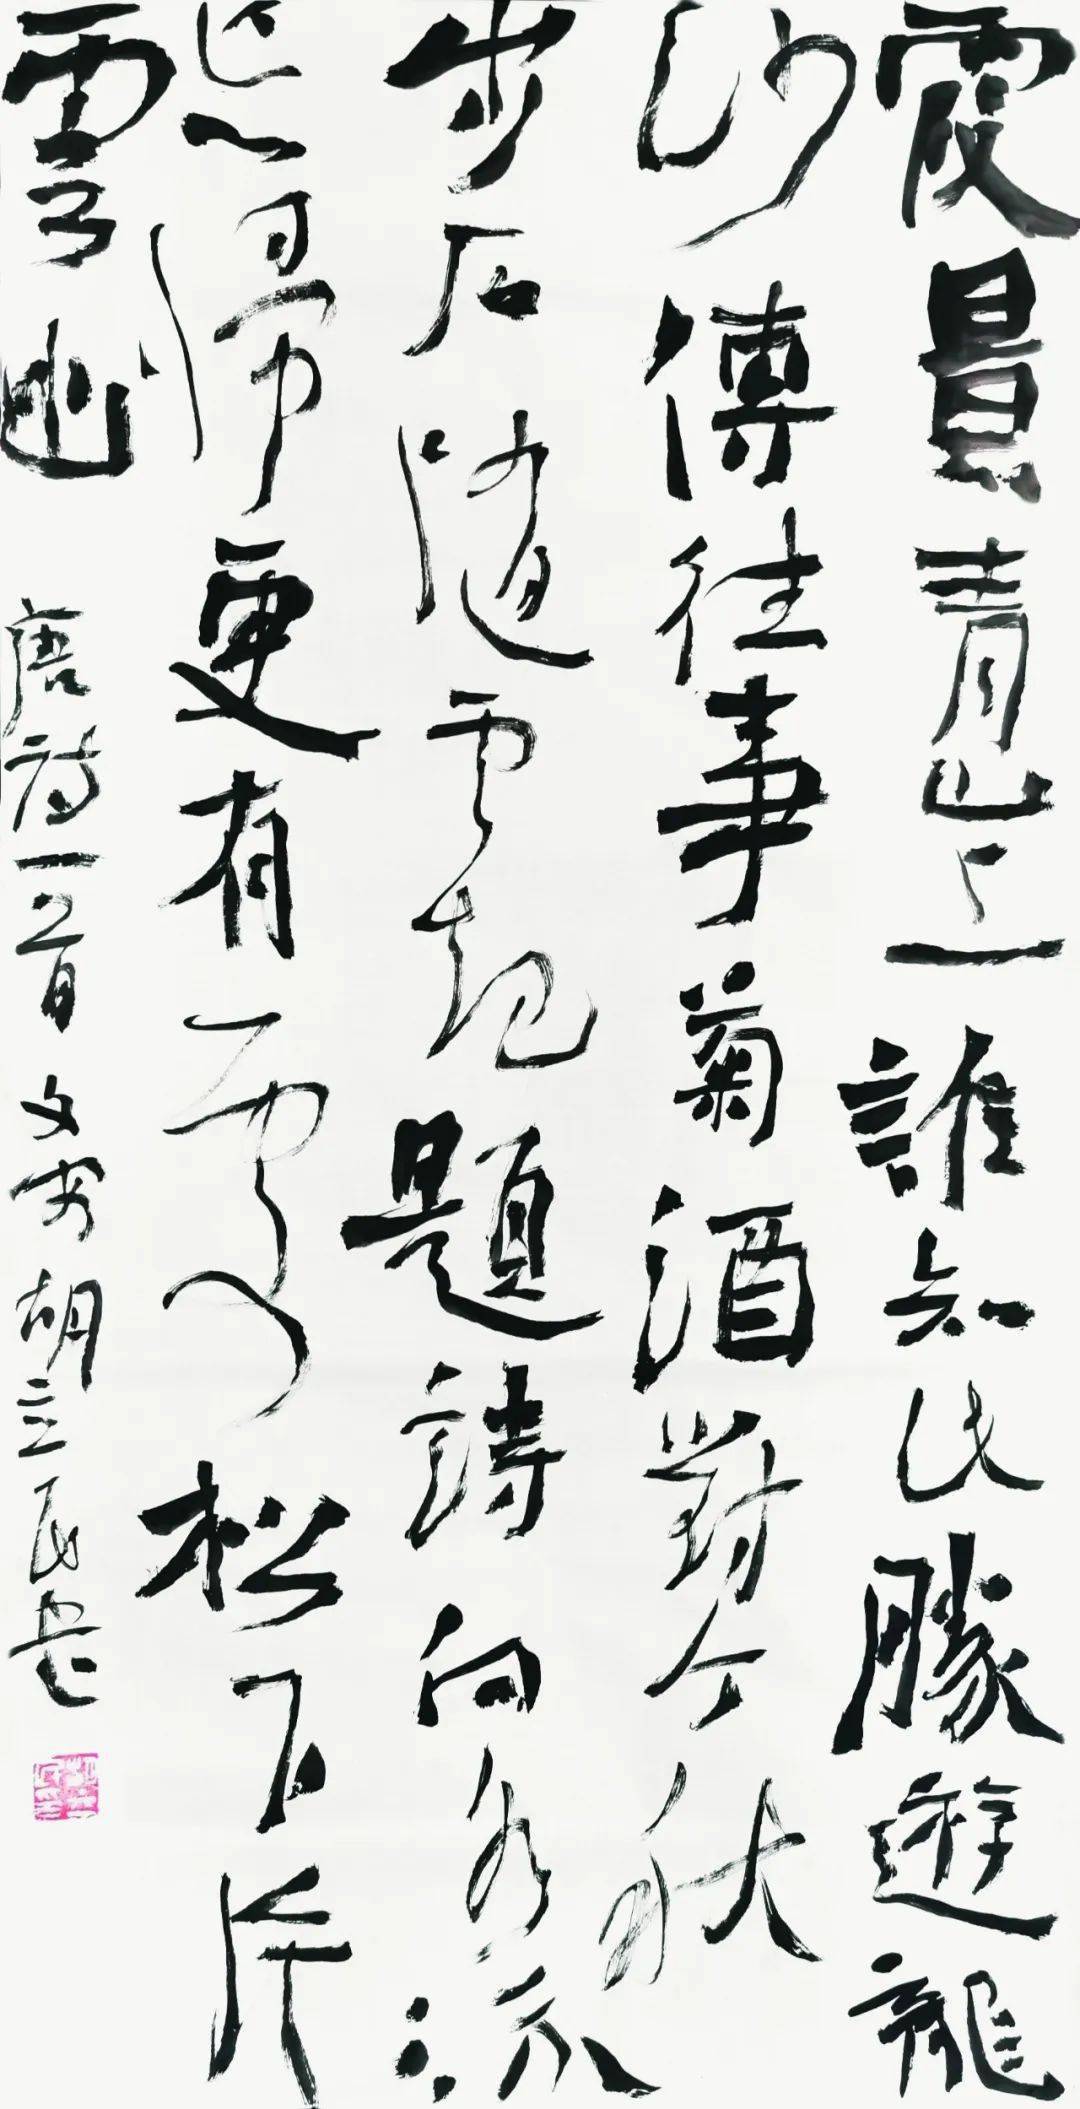 霞景青山上誰知此勝遊龍
沙傳往事菊酒對今秋
步石隨雲起題詩向水流
忘歸更有處松下片
雲幽 唐詩一首 文 胡立民書